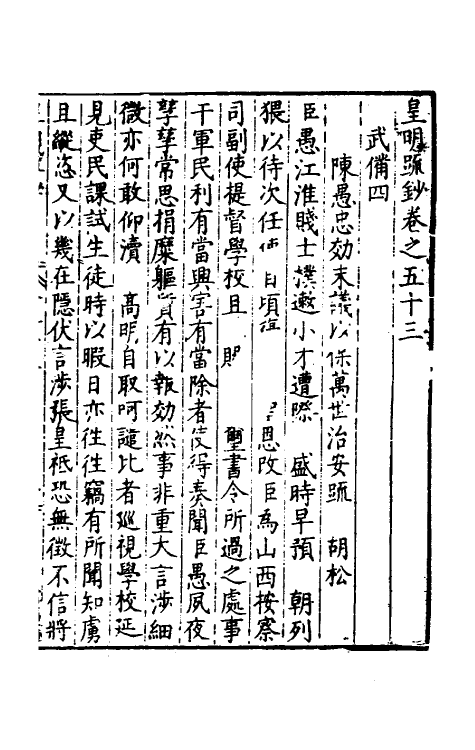 皇明疏鈔卷之五十三
武備四
陳愚忠効末議以保萬世治安疏 胡松
臣愚江淮賤士樸遬小才遭際 盛時早預 朝列
猥以待次任 自頃 恩改臣為山西按察
司副使提督學校且 聖書令所過之處事
干軍民利有當興害有當除者使得奏聞臣愚夙夜
孳孳常思捐糜軀 有以報効然事非重大言涉細
微亦何敢仰瀆 高明自取呵譴比者巡視學校延
見吏民課試生徒時以暇日亦往往竊有所聞知虜
且縱恣又以幾在隱伏言涉張皇祗恐無徵不信將